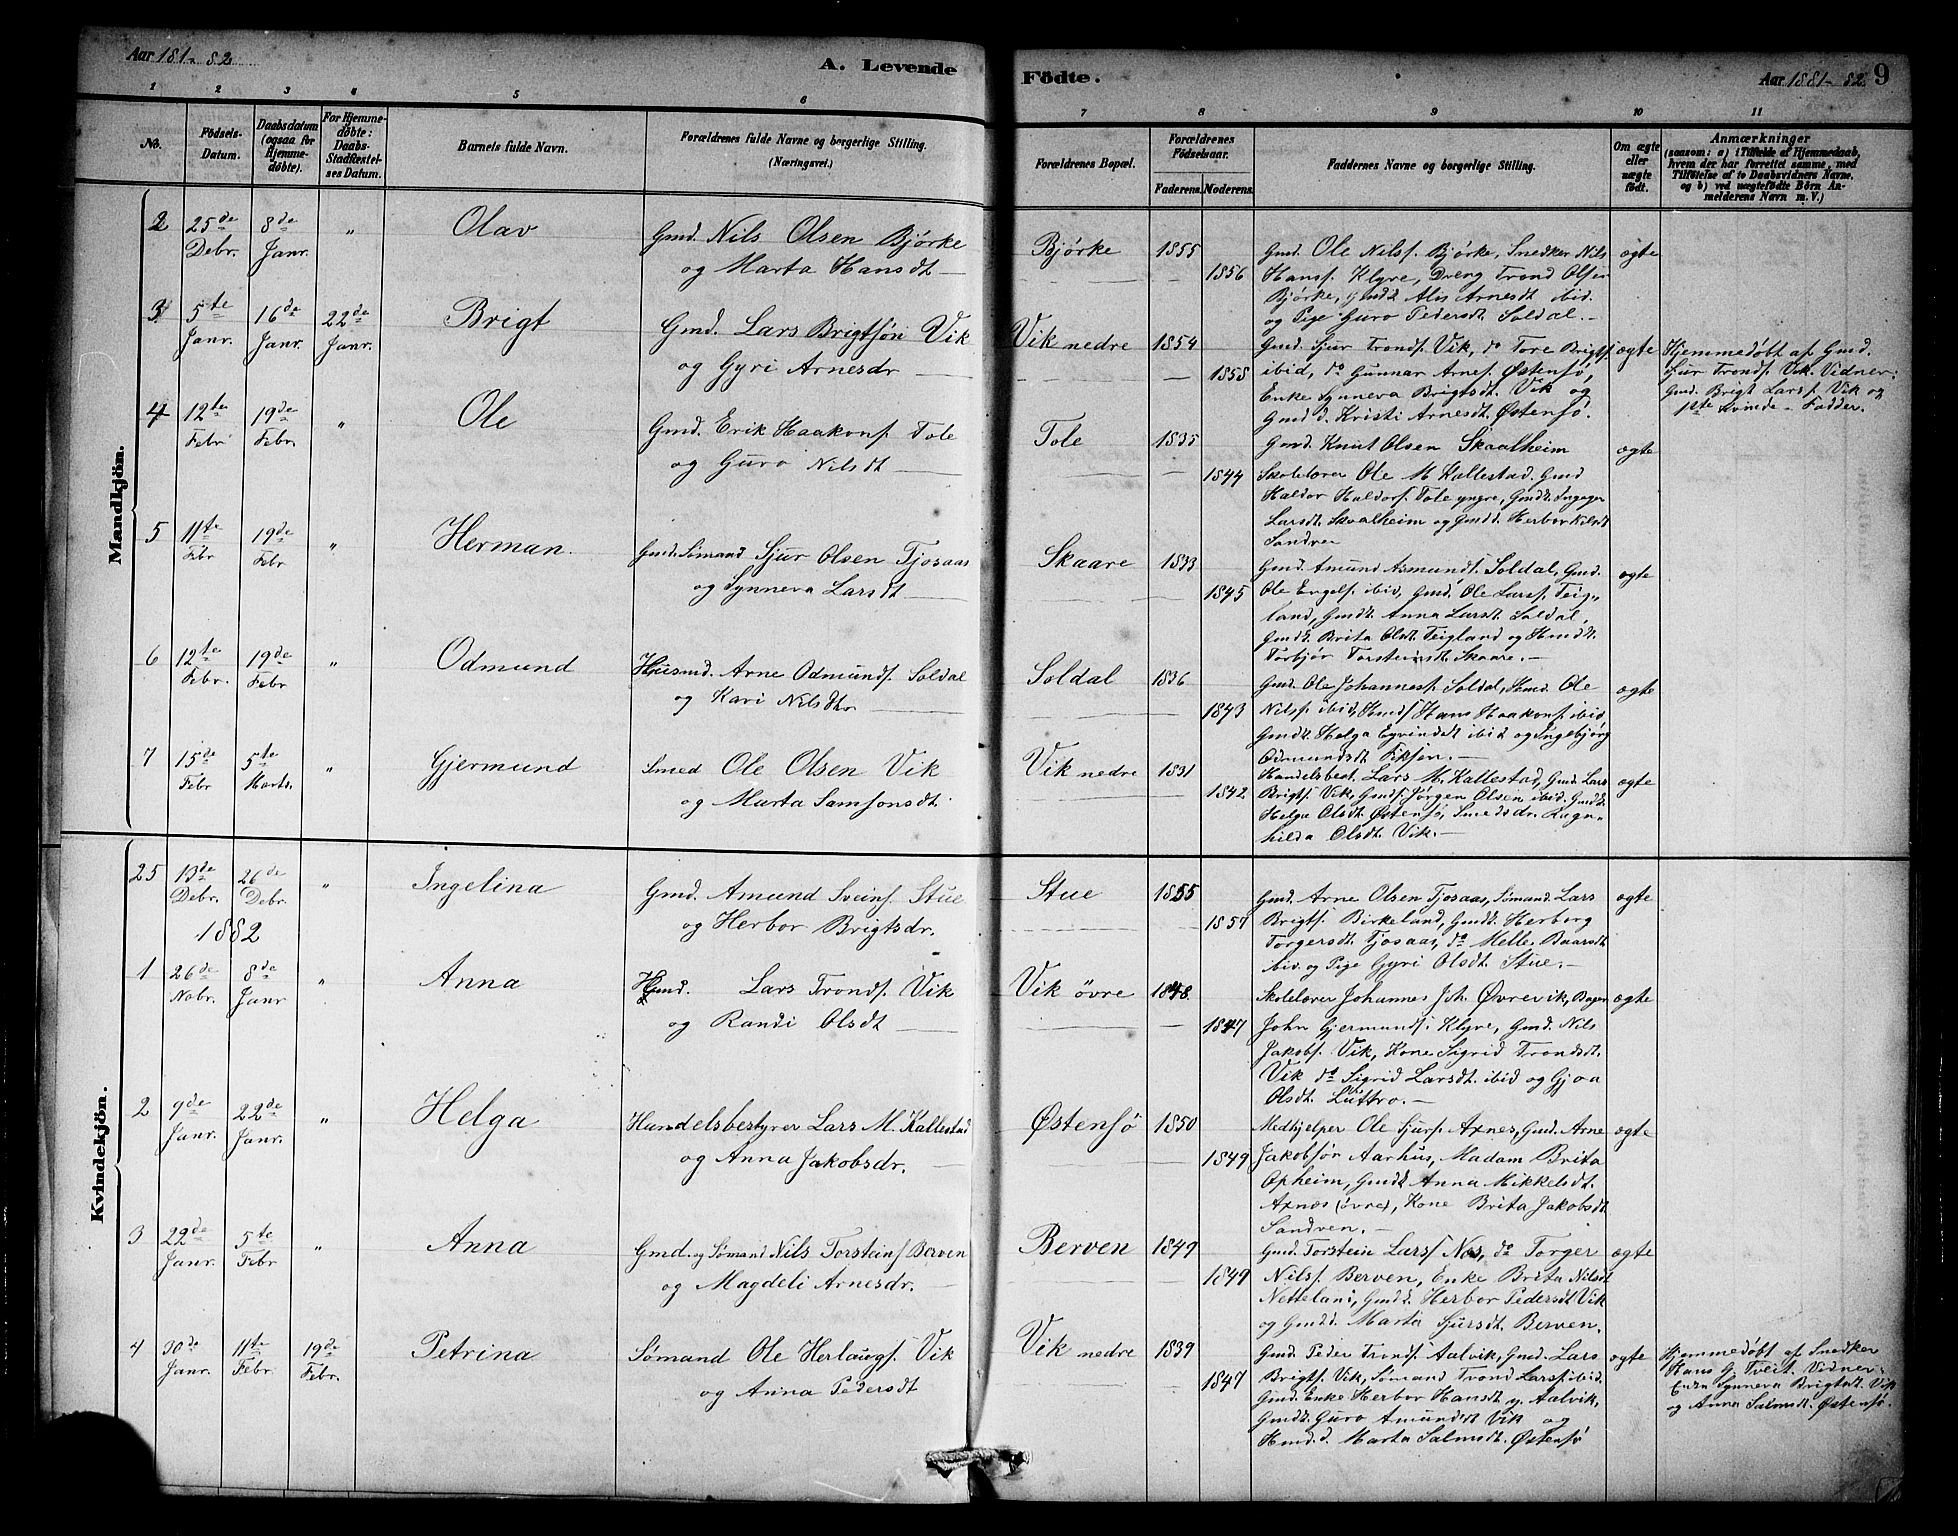 Aar 181-82
A. Levende
Födte.
Aar 1881-82
9
1 2 3 4 5 6 7 8 9 10 11
No.
Födsels-
Datum.
Daabsdatum
(ogsaa for
Hjemme-
døbte).
For Hjemme-
døbte:
Daabs-
Stadfæstel-
ses Datum.
Barnets fulde Navn.
Forældrenes fulde Navne og borgerlige Stilling.
(Næringsvei.)
Forældrenes Bopæl.
Forældrenes
Födselsaar.
Faderens. Moderens.
Faddernes Navne og borgerlige Stilling.
Om ægte
eller
uægte
født.
Anmærkninger
(saasom: a) i Tilfælde af Hjemmedaab,
hvem der har forrettet samme, med
Tilföielse af to Daabsvidners Navne,
og b) ved uægtefödte Börn An-
melderens Navn m. V.)
Mandkjön.
2 25de Debr. 8de Janr. " Olav
Gmd. Nils Olsen Bjørke
og Marta Hansdt
Bjørke 1855 1856
Gmd. Ole Nilsf. Bjørke, Snedker Nils
Hansf. Klyve, Dreng Trond Olsen
Bjørke, Gmdk. Alis Arnesdt ibid.
og Pige Guro Pedersdt Soldal.
ægte
3 5te Janr. 16de Janr. 22de Janr. Brigt
Gmd. Lars Brigtsøn Vik
og Gyri Arnesdr
Vik nedre 1854 1858
Gmd. Sjur Trondf. Vik, do Tore Brigtf.
ibid, do Gunnar Arnef. Østensø,
Enke Synneva Brigtsdt. Vik og
Gmd d. Kristi Arnesdt. Østensø.
ægte
Hjemmedøbt af Gmd.
Sjur Trondf. Vik. Vidner:
Gmd. Brigt Larsf. Vik og
1ste Kvinde-Fadder.
4 12te Febr 19de Febr. " Ole
Gmd. Erik Haakonf. Tole
og Guro Nilsdt
Tole 1835 1844
Gmd. Knut Olsen Skaalheim
Skolelærer Ole M. Kallestad, Gmd
Haldor Haldorf. Tole yngre, Gmdk. Ingeger
Larsdt. Skaalheim og Gmdd. Herbor Nilsdt
Sandven
ægte
5 11te Febr 19de Febr " Herman.
Gmd. Sømand Sjur Olsen Tjosaas
og Synneva Larsdt
Skaare 1833 1845
Gmd. Amund Asmundf. Soldal, Gmd.
Ole Engelf. ibid, Gmd. Ole Larsf. Teig-
land, Gmdk. Anna Larsdt Soldal,
Gmdk. Brita Olsdt. Teigland og Hmdk.
Torbjør Torsteinsdt. Skaare.
ægte
6 12te Febr. 19de Febr " Odmund
Husmd. Arne Odmundf. Soldal
og Kari Nilsdtr
Soldal 1836 1843
Gmd. Ole Johannesf. Soldal, Hmd. Ole
Nilsf. ibid, Hmdf Hans Haakonf. ibid
Gmdk. Helga Eyvindsdt ibid og Ingebjørg
Odmundsdt Fiksen.
ægte
7 15de Febr 5te Marts. " Gjermund
Smed Ole Olsen Vik
og Marta Samsonsdt.
Vik nedre 1831 1842
Handelsbest. Lars M. Kallestad, Gmd. Lars
Brigtf. Vik, Gmdf. Jørgen Olsen ibid. Gmdk
Helga Olsdt. Østensø, Smedsdr. Ragn-
hilda Olsdt. Vik.
ægte
Kvindekjön.
25 13de Debr. 26de Debr. " Ingelina
Gmd. Amund Sveinf. Stue
og Herbor Brigtsdr.
Stue 1855 1857
Gmd. Arne Olsen Tjosaas, Sømand. Lars
Brigtf. Birkeland, Gmdk. Herborg
Torgersdt. Tjosaas, do Melle Baarsdt
ibid. og Pige Gyri Olsdt. Stue.
ægte
1882
1 26de Nobr. 8de Janr " Anna
Gmd. Lars Trondf. Vik
og Randi Olsdt
Vik øvre 1848. 1847
Skolelærer Johannes Joh. Øvrevik, Bager
John Gjermundf. Klyve, Gmd. Nils
Jakobf. Vik, Kone Sigrid Trondsdt.
Vik do Sigrid Larsdt. ibid og Gjoa
Olsdt. Luttro.
ægte
2 9de Janr. 22de Janr. " Helga
Handelsbestyrer Lars M. Kallestad
og Anna Jakobsdr.
Østensø 1850 1849
Medhjelper Ole Sjurf. Axnes, Gmd. Arne
Jakobsøn Aarhus, Madam Brita
Opheim, Gmdk Anna Mikkelsdt.
Axnes (øvre), Kone Brita Jakobsdt
Sandven.
ægte
3 22de Janr. 5te Febr " Anna
Gmd. og Sømand Nils Torsteinf Berven
og Magdeli Arnesdr.
Berven 1849 1849
Gmd. Torstein Larsf Nes, do Torger
Nilsf. Berven, Enke Brita Nilsdt
Netteland, Gmdd. Herbor Pedersdt Vik
og Gmdd. Marta Sjursdt. Berven.
ægte
4 30de Janr. 11te Febr 19de Febr. Petrina
Sømand Ole Herlaugf. Vik
og Anna Pedersdt
Vik nedre 1839 1847
Gmd. Peder Trondf Aalvik, Gmd. Lars
Brigtf. Vik, Sømand Trond Larsf ibid.
Gmd. Enke Herbor Hansdt y. Aalvik,
Gmdk. Guro Amundsdt Vik og
Hmd. d. Marta Salmsdt. Østensø
ægte
Hjemmedøbt af Snedker
Hans G. Tveit. Vidner:
Enke Synneva Brigtsdt. Vik
og Anna Salmsdt. Østensø.